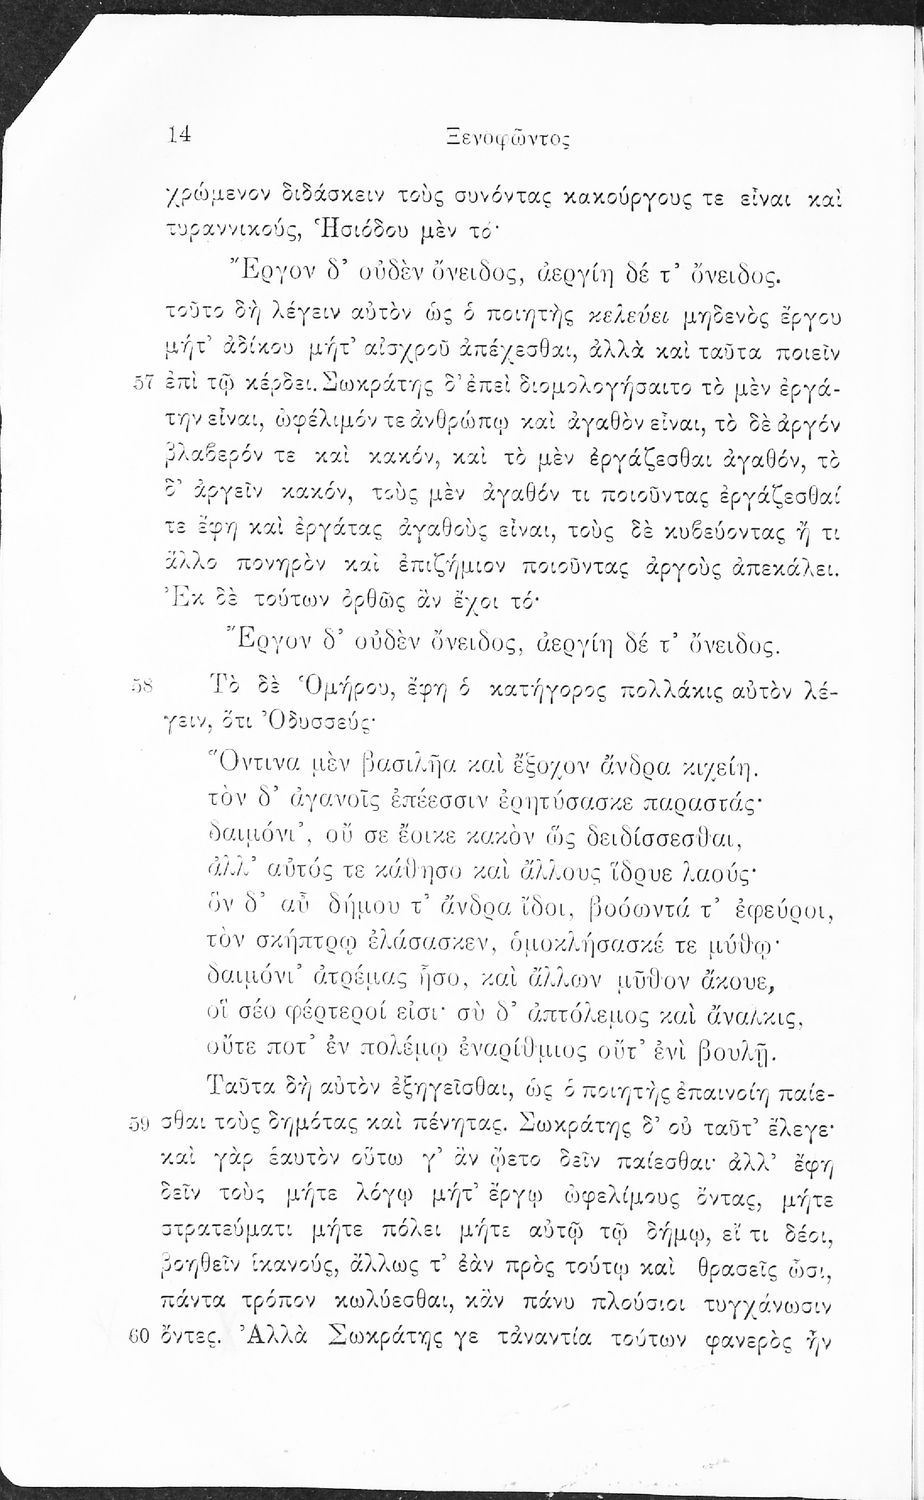 14 Ξενοφῶντος
χρώμενον διδάσκειν τοὺς συνόντας κακούργους τε εἶναι καὶ
τυραννικούς, Ἡσιόδου μὲν τό·
Ἔργον δ’ οὐδὲν ὄνειδος, ἀεργίη δέ τ’ ὄνειδος.
τοῦτο δὴ λέγειν αὐτὸν ὡς ὁ ποιητὴς κελεύει μηδενὸς ἔργου
μήτ’ ἀδίκου μήτ’ αἰσχροῦ ἀπέχεσθαι, ἀλλὰ καὶ ταῦτα ποιεῖν
57 ἐπὶ τῷ κέρδει. Σωκράτης δ’ ἐπεὶ διομολογήσαιτο τὸ μὲν ἐργά-
την εἶναι, ὠφέλιμόν τε ἀνθρώπῳ καὶ ἀγαθὸν εἶναι, τὸ δὲ ἀργόν
βλαϐερόν τε καὶ κακόν, καὶ τὸ μὲν ἐργάζεσθαι ἀγαθόν, τὸ
δ’ ἀργεῖν κακόν, τοὺς μὲν ἀγαθόν τι ποιοῦντας ἐργάζεσθαί
τε ἔφη καὶ ἐργάτας ἀγαθοὺς εἶναι, τοὺς δὲ κυϐεύοντας ἤ τι
ἄλλο πονηρὸν καὶ ἐπιζήμιον ποιοῦντας ἀργοὺς ἀπεκάλει.
Ἐκ δὲ τούτων ὀρθῶς ἂν ἔχοι τό·
Ἔργον δ’ οὐδὲν ὄνειδος, ἀεργίη δέ τ’ ὄνειδος.
58 Τὸ δὲ Ὁμήρου, ἔφη ὁ κατήγορος πολλάκις αὐτὸν λέ-
γειν, ὅτι Ὀδυσσεύς·
Ὅντινα μὲν βασιλῆα καὶ ἔξοχον ἄνδρα κιχείη,
τὸν δ’ ἀγανοῖς ἐπέεσσιν ἐρητύσασκε παραστάς·
δαιμόνι’, οὔ σε ἔοικε κακὸν ὣς δειδίσσεσθαι,
ἀλλ’ αὐτός τε κάθησο καὶ ἄλλους ἵδρυε λαούς·
ὃν δ’ αὖ δήμου τ’ ἄνδρα ἴδοι, βοόωντά τ’ ἐφεύροι,
τὸν σκήπτρῳ ἐλάσασκεν, ὁμοκλήσασκέ τε μύθῳ·
δαιμόνι’ ἀτρέμας ἧσο, καὶ ἄλλων μῦθον ἄκουε,
οἳ σέο φέρτεροί εἰσι· σὺ δ’ ἀπτόλεμος καὶ ἄναλκις,
οὔτε ποτ’ ἐν πολέμῳ ἐναρίθμιος οὔτ’ ἐνὶ βουλῇ.
Ταῦτα δὴ αὐτὸν ἐξηγεῖσθαι, ὡς ὁ ποιητὴς ἐπαινοίη παίε-
59 σθαι τοὺς δημότας καὶ πένητας. Σωκράτης δ’ οὐ ταῦτ’ ἔλεγε·
καὶ γὰρ ἑαυτὸν οὕτω γ’ ἂν ᾤετο δεῖν παίεσθαι· ἀλλ’ ἔφη
δεῖν τοὺς μήτε λόγῳ μήτ’ ἔργῳ ὠφελίμους ὄντας, μήτε
στρατεύματι μήτε πόλει μήτε αὐτῷ τῷ δήμῳ, εἴ τι δέοι,
βοηθεῖν ἱκανούς, ἄλλως τ’ ἐὰν πρὸς τούτῳ καὶ θρασεῖς ὦσι,
πάντα τρόπον κωλύεσθαι, κἂν πάνυ πλούσιοι τυγχάνωσιν
60 ὄντες. Ἀλλὰ Σωκράτης γε τἀναντία τούτων φανερὸς ἦν